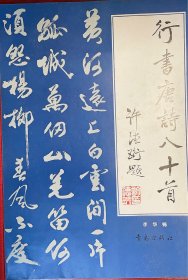 行書唐詩八十首
许德珩題
黄河遠上白雲間一片
孤城萬仞山羌笛何
須怨楊柳春風不度